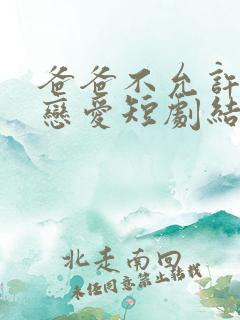 爸爸不允許
戀愛短劇結
北走南回
未經同意禁止轉載